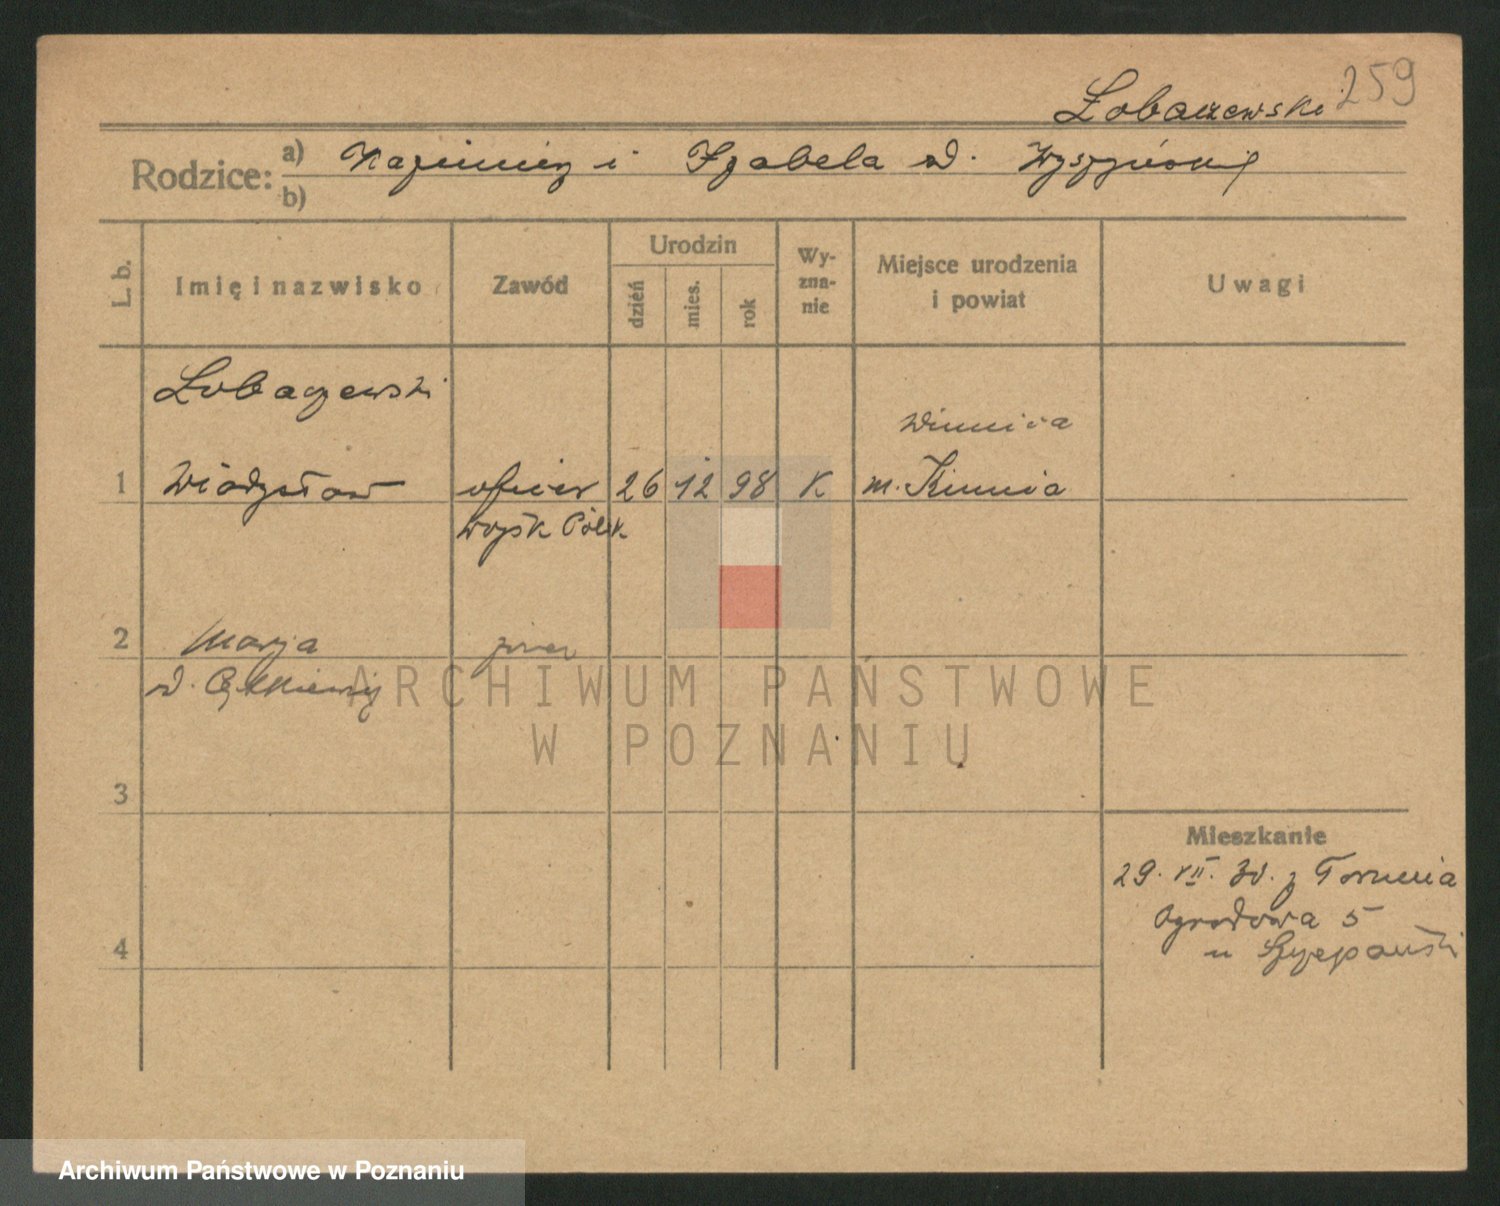 259
Łobaczewski
Rodzice: a) Kazimierz i Izabela d. Wyszyńskij
b)
L. b.
Imię i nazwisko
Zawód
Urodzin
dzień
mies.
rok
Wy-
zna-
nie
Miejsce urodzenia
i powiat
Uwagi
Łobaczewski
Winnica
1 Władysław oficer 26 12 98 K m.
Wojsk Polsk
2 Marja
d.
3
4
Mieszkanie
29. VII. 30. z Torunia
Ogrodowa 5
u Szczepański
ARCHIWUM PAŃSTWOWE
W POZNANIU
Archiwum Państwowe w Poznaniu